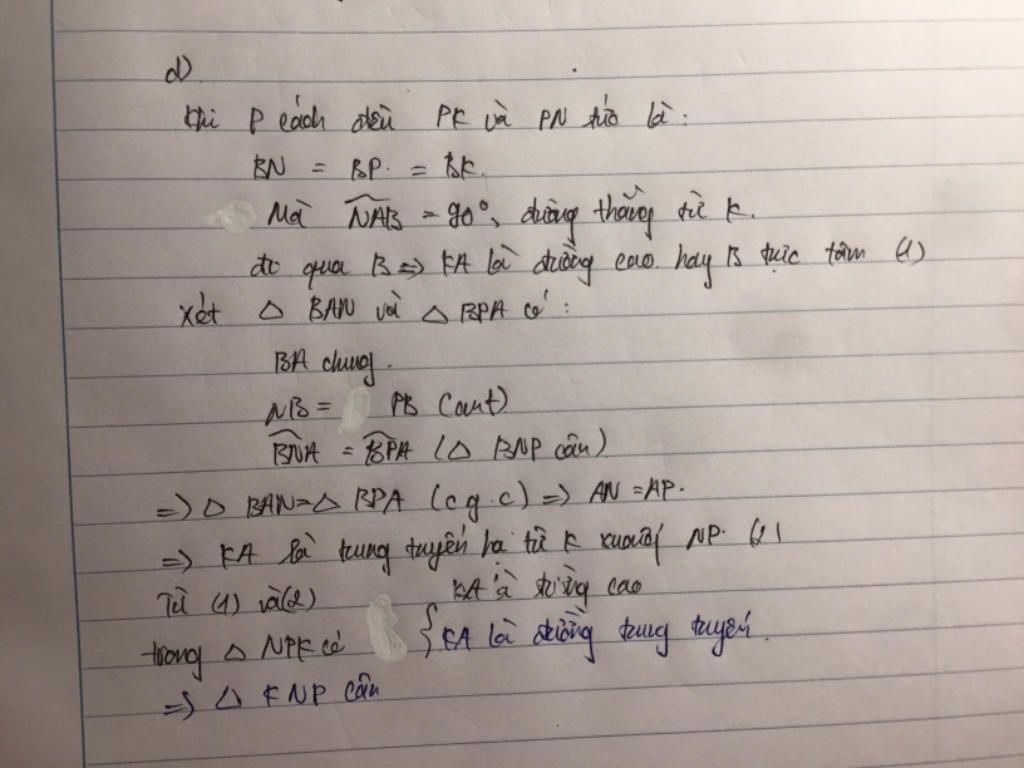 d)
Khi P cách đều PK và PN tức là:
BN = BP. = BK.
Mà NAB = 90°, đường thẳng từ K.
đi qua B => KA là đường cao hay B trực tâm (1)
Xét △ BAN và △ BPA có:
BA chung.
NB = PB (cmt)
BNA = BPA (△ BNP cân)
=> △ BAN = △ BPA (c g . c) => AN = AP.
=> KA là trung tuyến hạ từ K xuống NP. (2)
Từ (1) và (2)
KA là đường cao
trong △ NPK có { KA là đường trung tuyến.
=> △ KNP cân